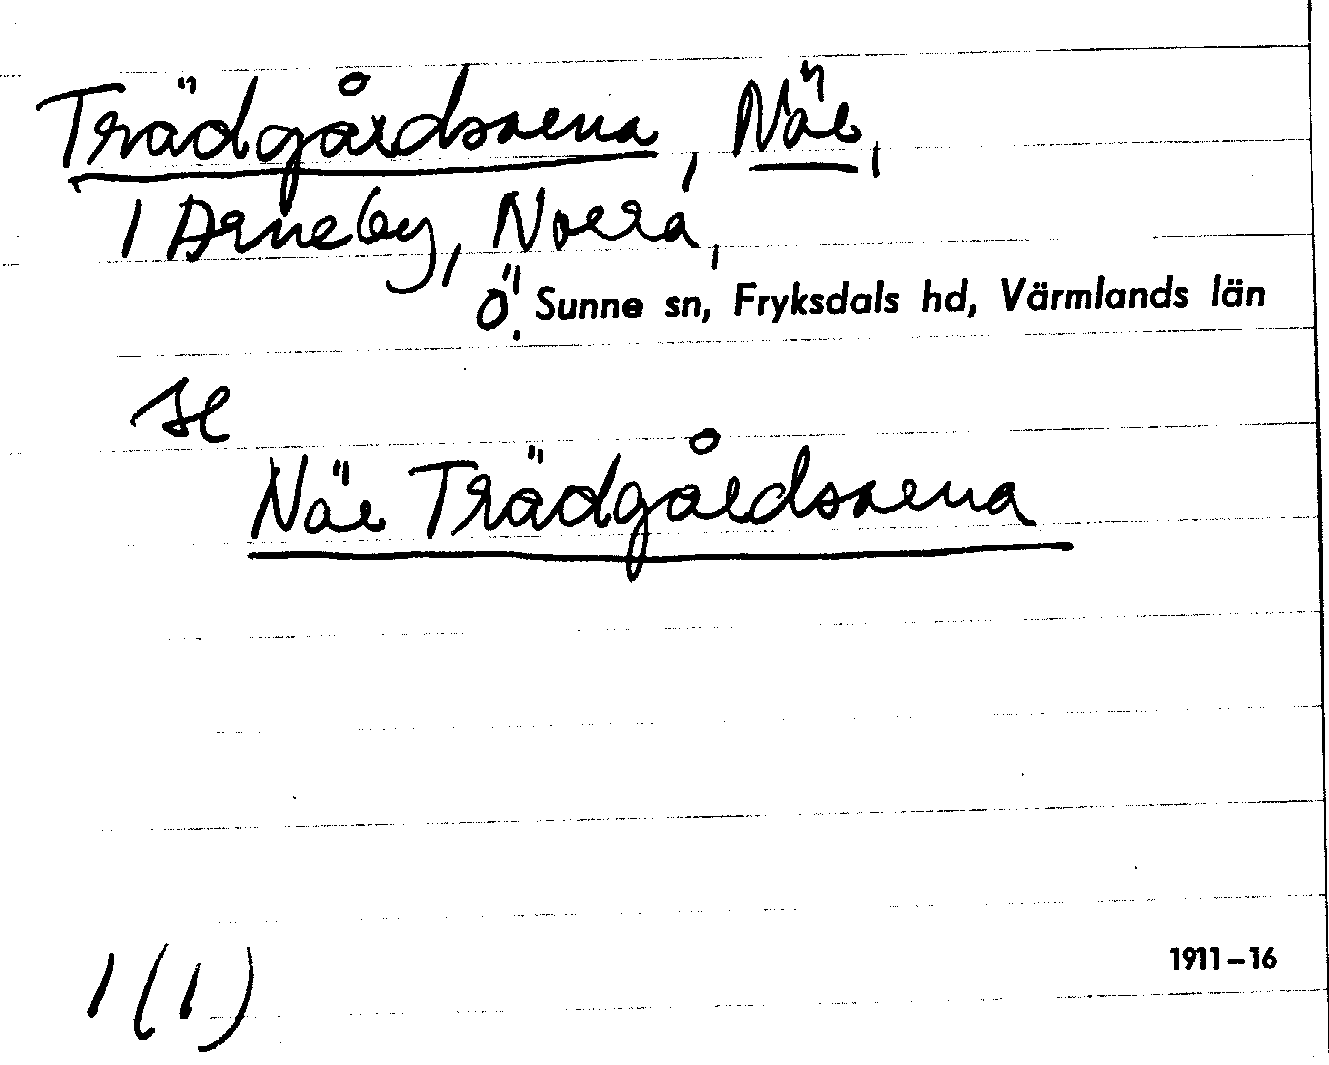 Trädgårdsarna, När,
1 Arneby, Norra,
Ö. Sunne sn, Fryksdals hd, Värmlands län
se
När Trädgårdsarna
1 (1)
1911–16